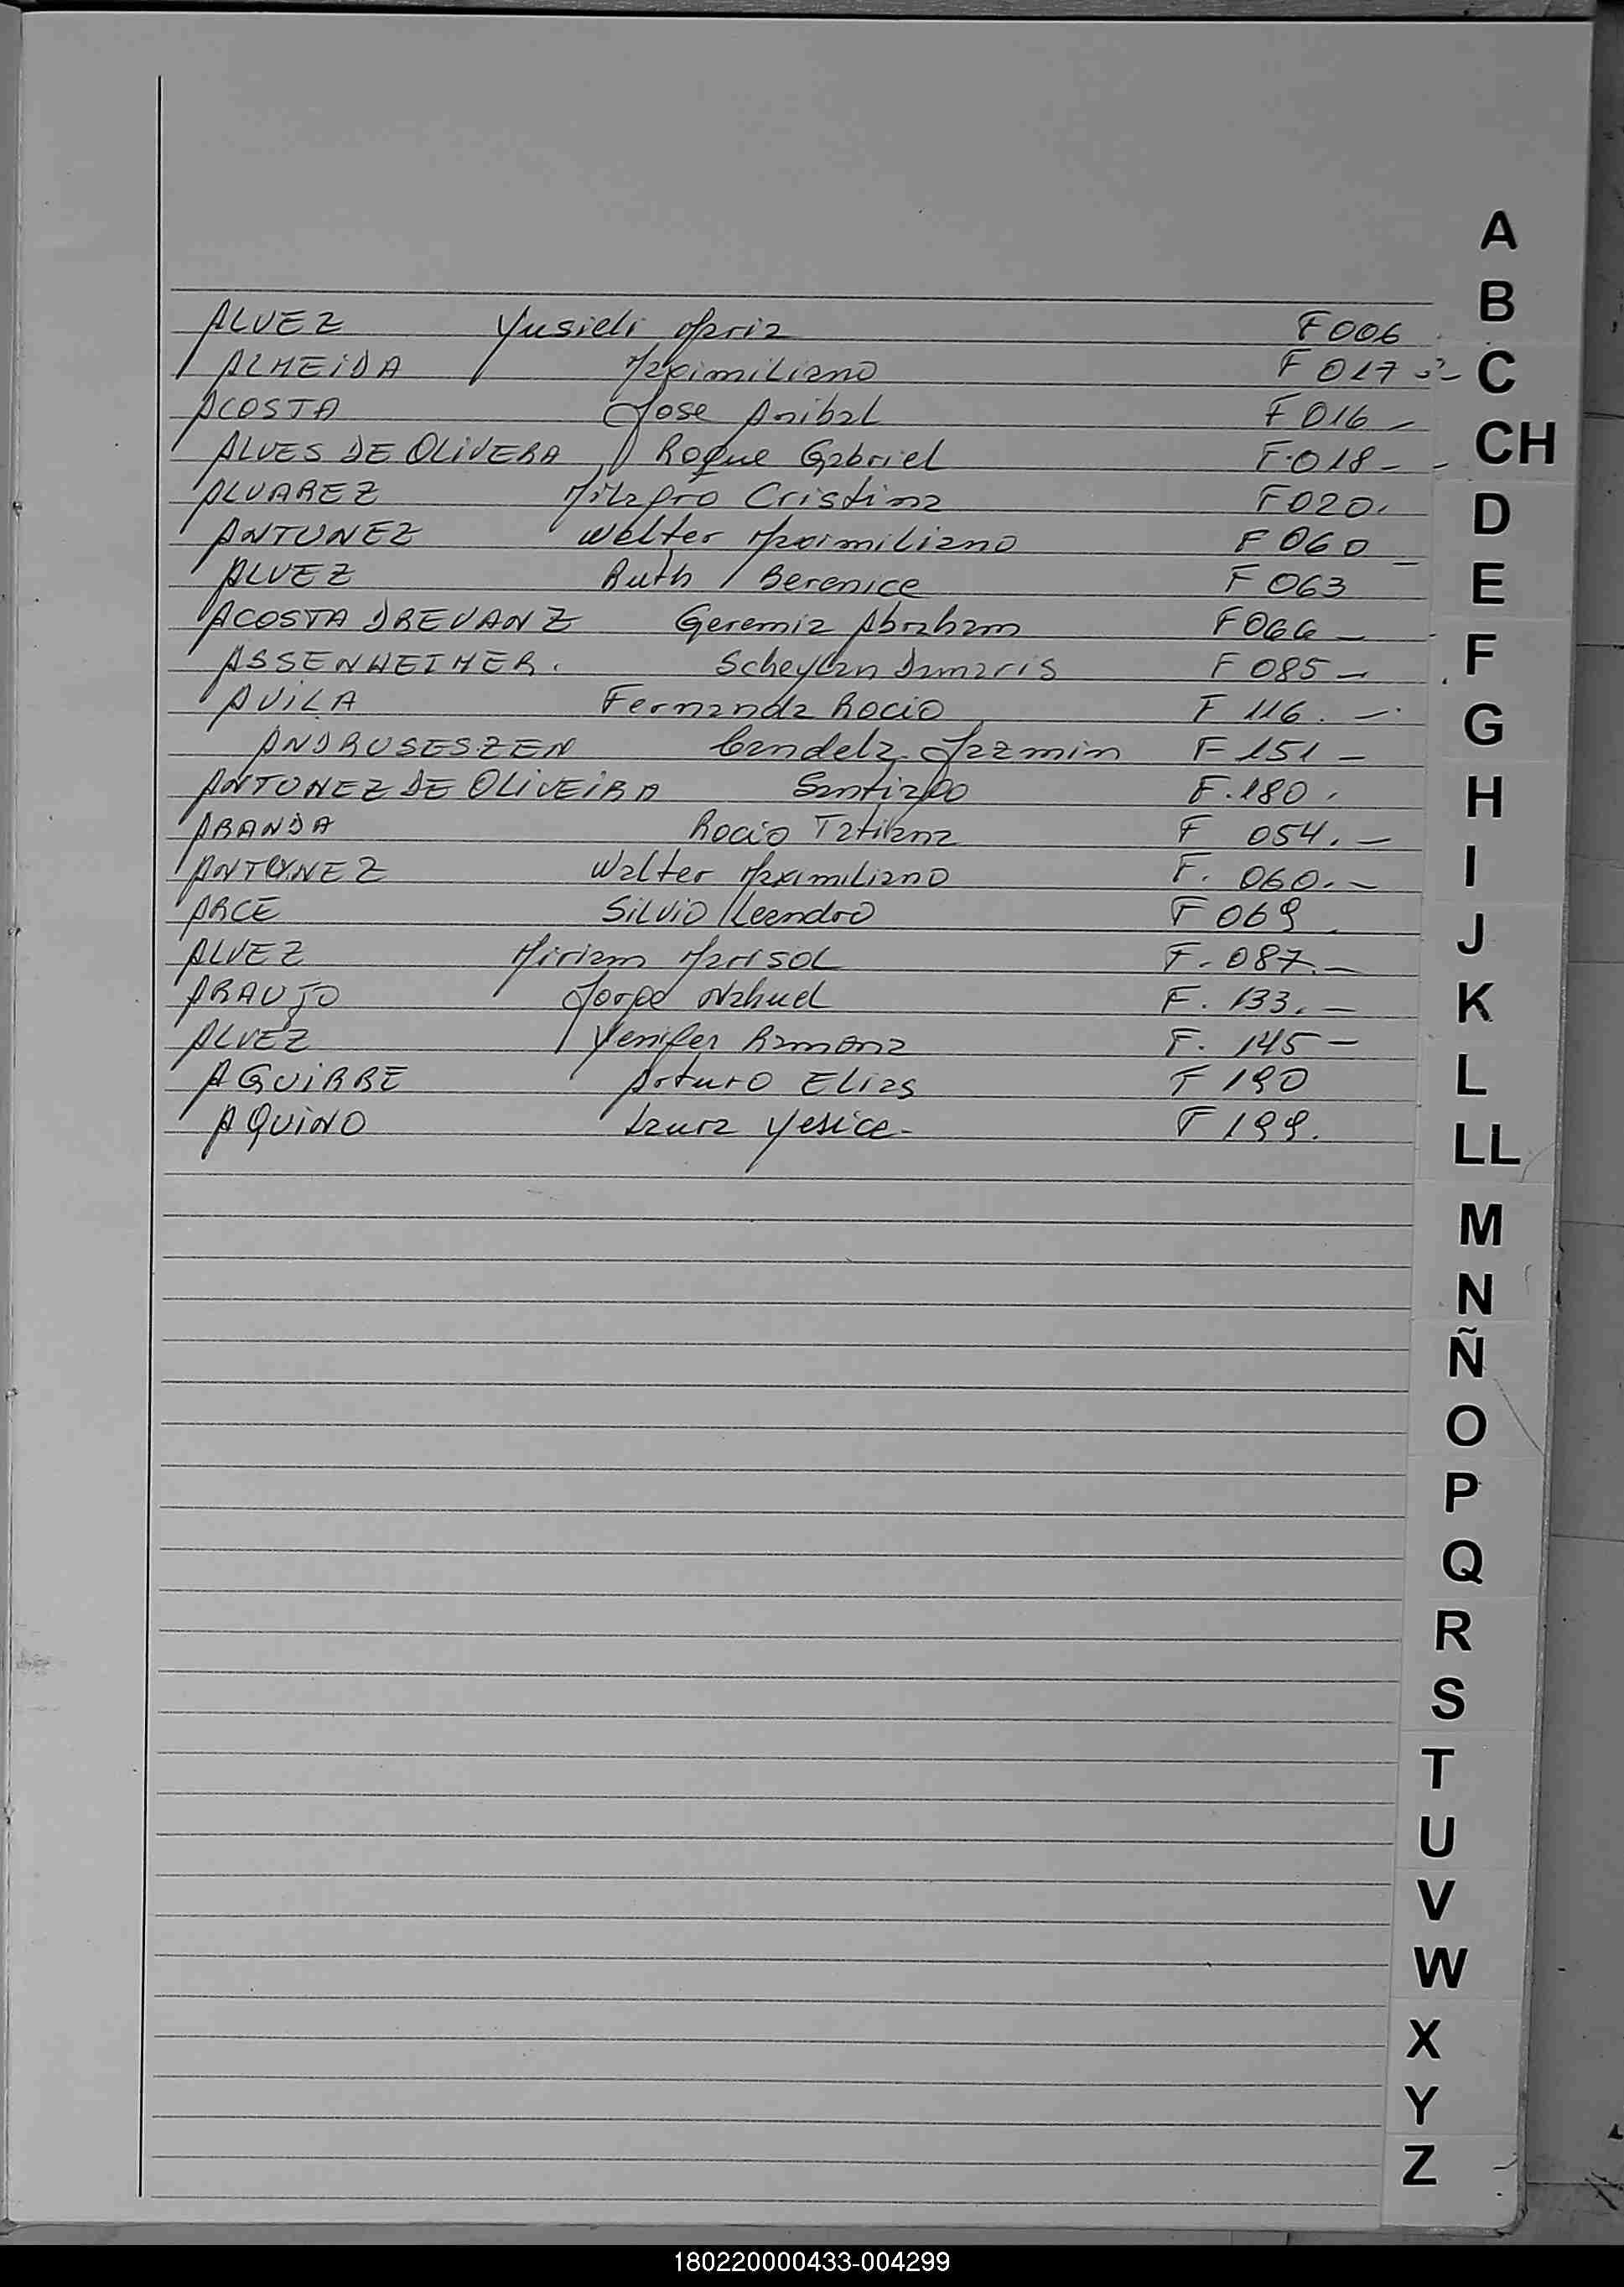 A
B
ALVEZ Yusieli Maria F006
ALMEIDA Maximiliano F 017 -"-
C
ACOSTA Jose Anibal F 016 -
CH
ALVES DE OLIVERA Roque Gabriel F.018 - -
ALVAREZ Milagro Cristina F020.
D
ANTUNEZ Walter Maximiliano F 060 -
ALVEZ Ruth Berenice F 063
E
ACOSTA DREVANZ Geremia Abraham F066 -
F
ASSENHEIMER. Scheylan Damaris F 085 -
AVILA Fernanda Rocio F 116. -
G
ANDRUSESZEN Candela Jazmin F 151 -
ANTUNEZ DE OLIVEIRA Santiago F.180.
H
ARANDA Rocio Tatiana F 054. -
ANTUNEZ Walter Maximiliano F. 060. -
I
ARCE Silvio Leandro F 069
J
ALVEZ Miriam Marisol F. 087. -
ARAUJO Jorge Nahuel F. 133. -
K
ALVEZ Yenifer Ramona F. 145 -
AGUIRRE Arturo Elias F 190
L
AQUINO Laura Yesica - F 199.
LL
M
N
Ñ
O
P
Q
R
S
T
U
V
W
X
Y
Z
180220000433-004299